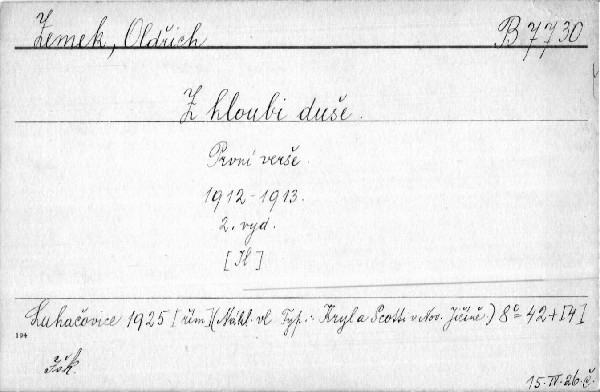 Zemek, Oldřich B 7730
Z hloubi duše.
První verše.
1912-1913.
2. vyd.
[Il]
Luhačovice 1925 [řím] (Nákl. vl. Typ.: Kryl a Scotti v Nov. Jičíně.) 8° 42+[4]
194
Fšk.
15.IV.26.č.